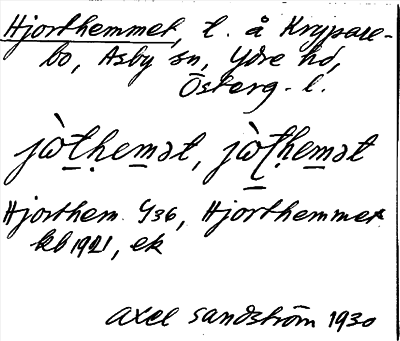 Hjorthemmet, t. å Krypare-
bo, Asby sn, Ydre hd,
Österg. l.
jò̀t̠ḥem̠ət, jò̀t̠ḥem̠ət
Hjorthem Y36, Hjorthemmet
kb 1921, ek
Axel Sandström 1930